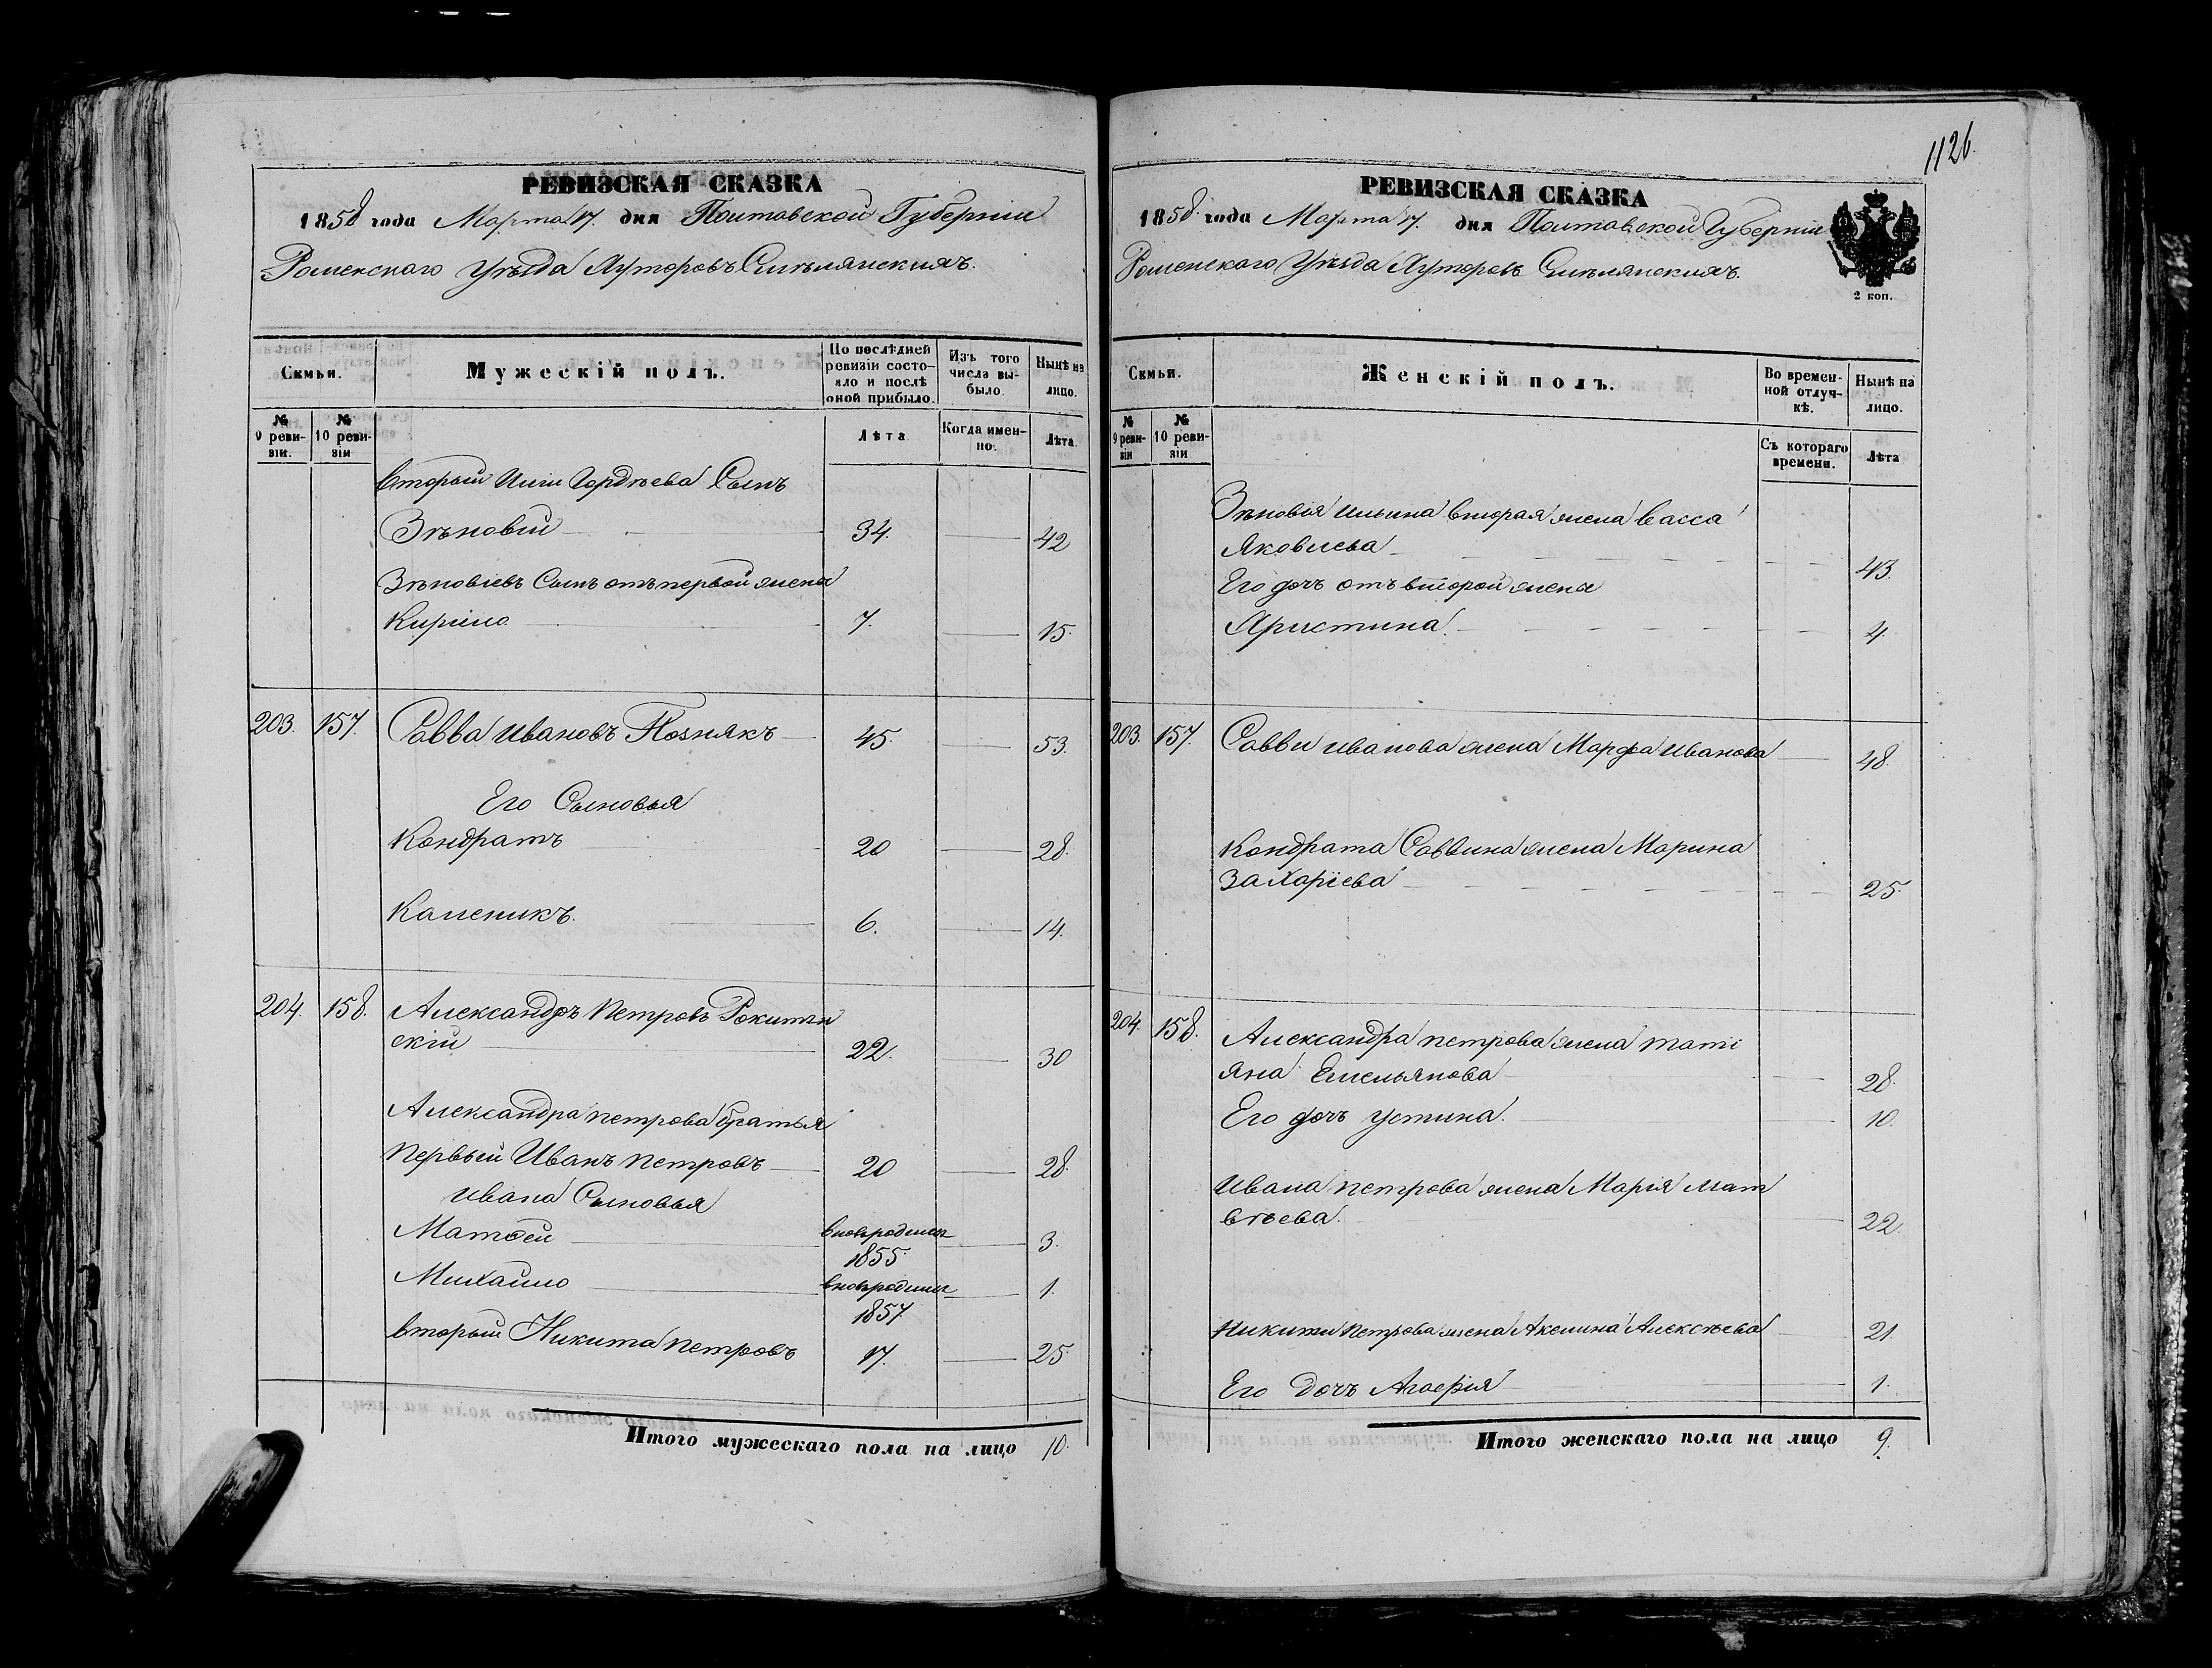 1126.
РЕВИЗСКАЯ СКАЗКА
1858 года Марта 17. дня Полтавской Губерніи
Роменскаго Уѣзда Хуторовъ Смѣлянскихъ.
Семьи.
Мужескій полъ.
По послѣдней ревизіи состо-
яло и послѣ
оной прибыло.
Изъ того
числа вы-
было.
Нынѣ на
лицо.
№
9 реви-
зіи.
№
10 реви-
зіи
Лѣта
Когда имен-
но.
Лѣта.
Вторый Ильи Гордѣева Сынъ
Зѣновій 34. 42
Зѣновіевъ Сынъ отъ первой жены
Кирило 7. 15.
203. 157. Савва Ивановъ Познякъ 45. 53.
Его Сыновья
Кондратъ 20 28.
Каленикъ. 6. 14.
204. 158. Александръ Петровъ Рокитян
скій 22. 30
Александра Петрова братья
Первый Иванъ Петровъ 20 28.
Ивана Сыновья
Матвей вновьродился 3.
1855.
Михайло вновьродился 1.
1857
Вторый Никита Петровъ 17. 25.
Итого мужескаго пола на лицо 10.
РЕВИЗСКАЯ СКАЗКА
1858 года Марта 17. дня Полтавской Губерніи
Роменскаго Уѣзда Хуторовъ Смѣлянскихъ.
2 коп.
Семьи.
Женскій полъ.
Во времен-
ной отлуч-
кѣ.
Нынѣ на
лицо.
№
9 реви-
зіи
№
10 реви-
зіи
Съ котораго
времени.
Лѣта
Зѣновія Ильина вторая жена Васса
Яковлева 43.
Его дочь отъ второй жены
Христина 4.
203. 157. Саввы Иванова жена Марфа Иванова 48.
Кондрата Саввина жена Марина
Захаріева 25.
204. 158. Александра Петрова жена Тати
яна Емельянова 28.
Его дочь Устина. 10.
Ивана Петрова жена Марія Мат
вѣева. 22.
Никиты Петрова жена Акелина Алексѣева 21.
Его Дочь Агафія 1.
Итого женскаго пола на лицо 9.